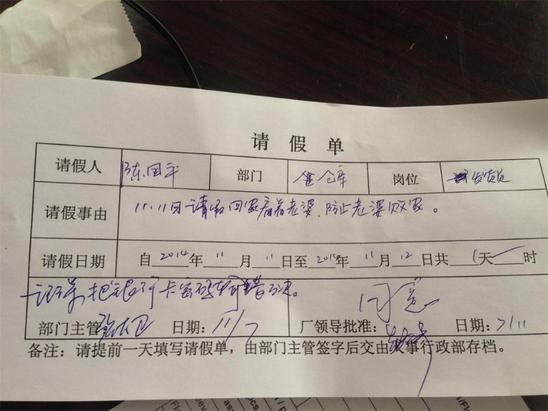 请假单
请假人 陈国平 部门 仓库 岗位 发货员
请假事由 11.11日请假回家看着老婆、防止老婆败家。
请假日期 自2014年11月11日至2014年11月12日共1天 时
把银行卡密码
同意
部门主管 日期:11/7 厂领导批准: 日期:7/11
备注:请提前一天填写请假单,由部门主管签字后交由人事行政部存档。